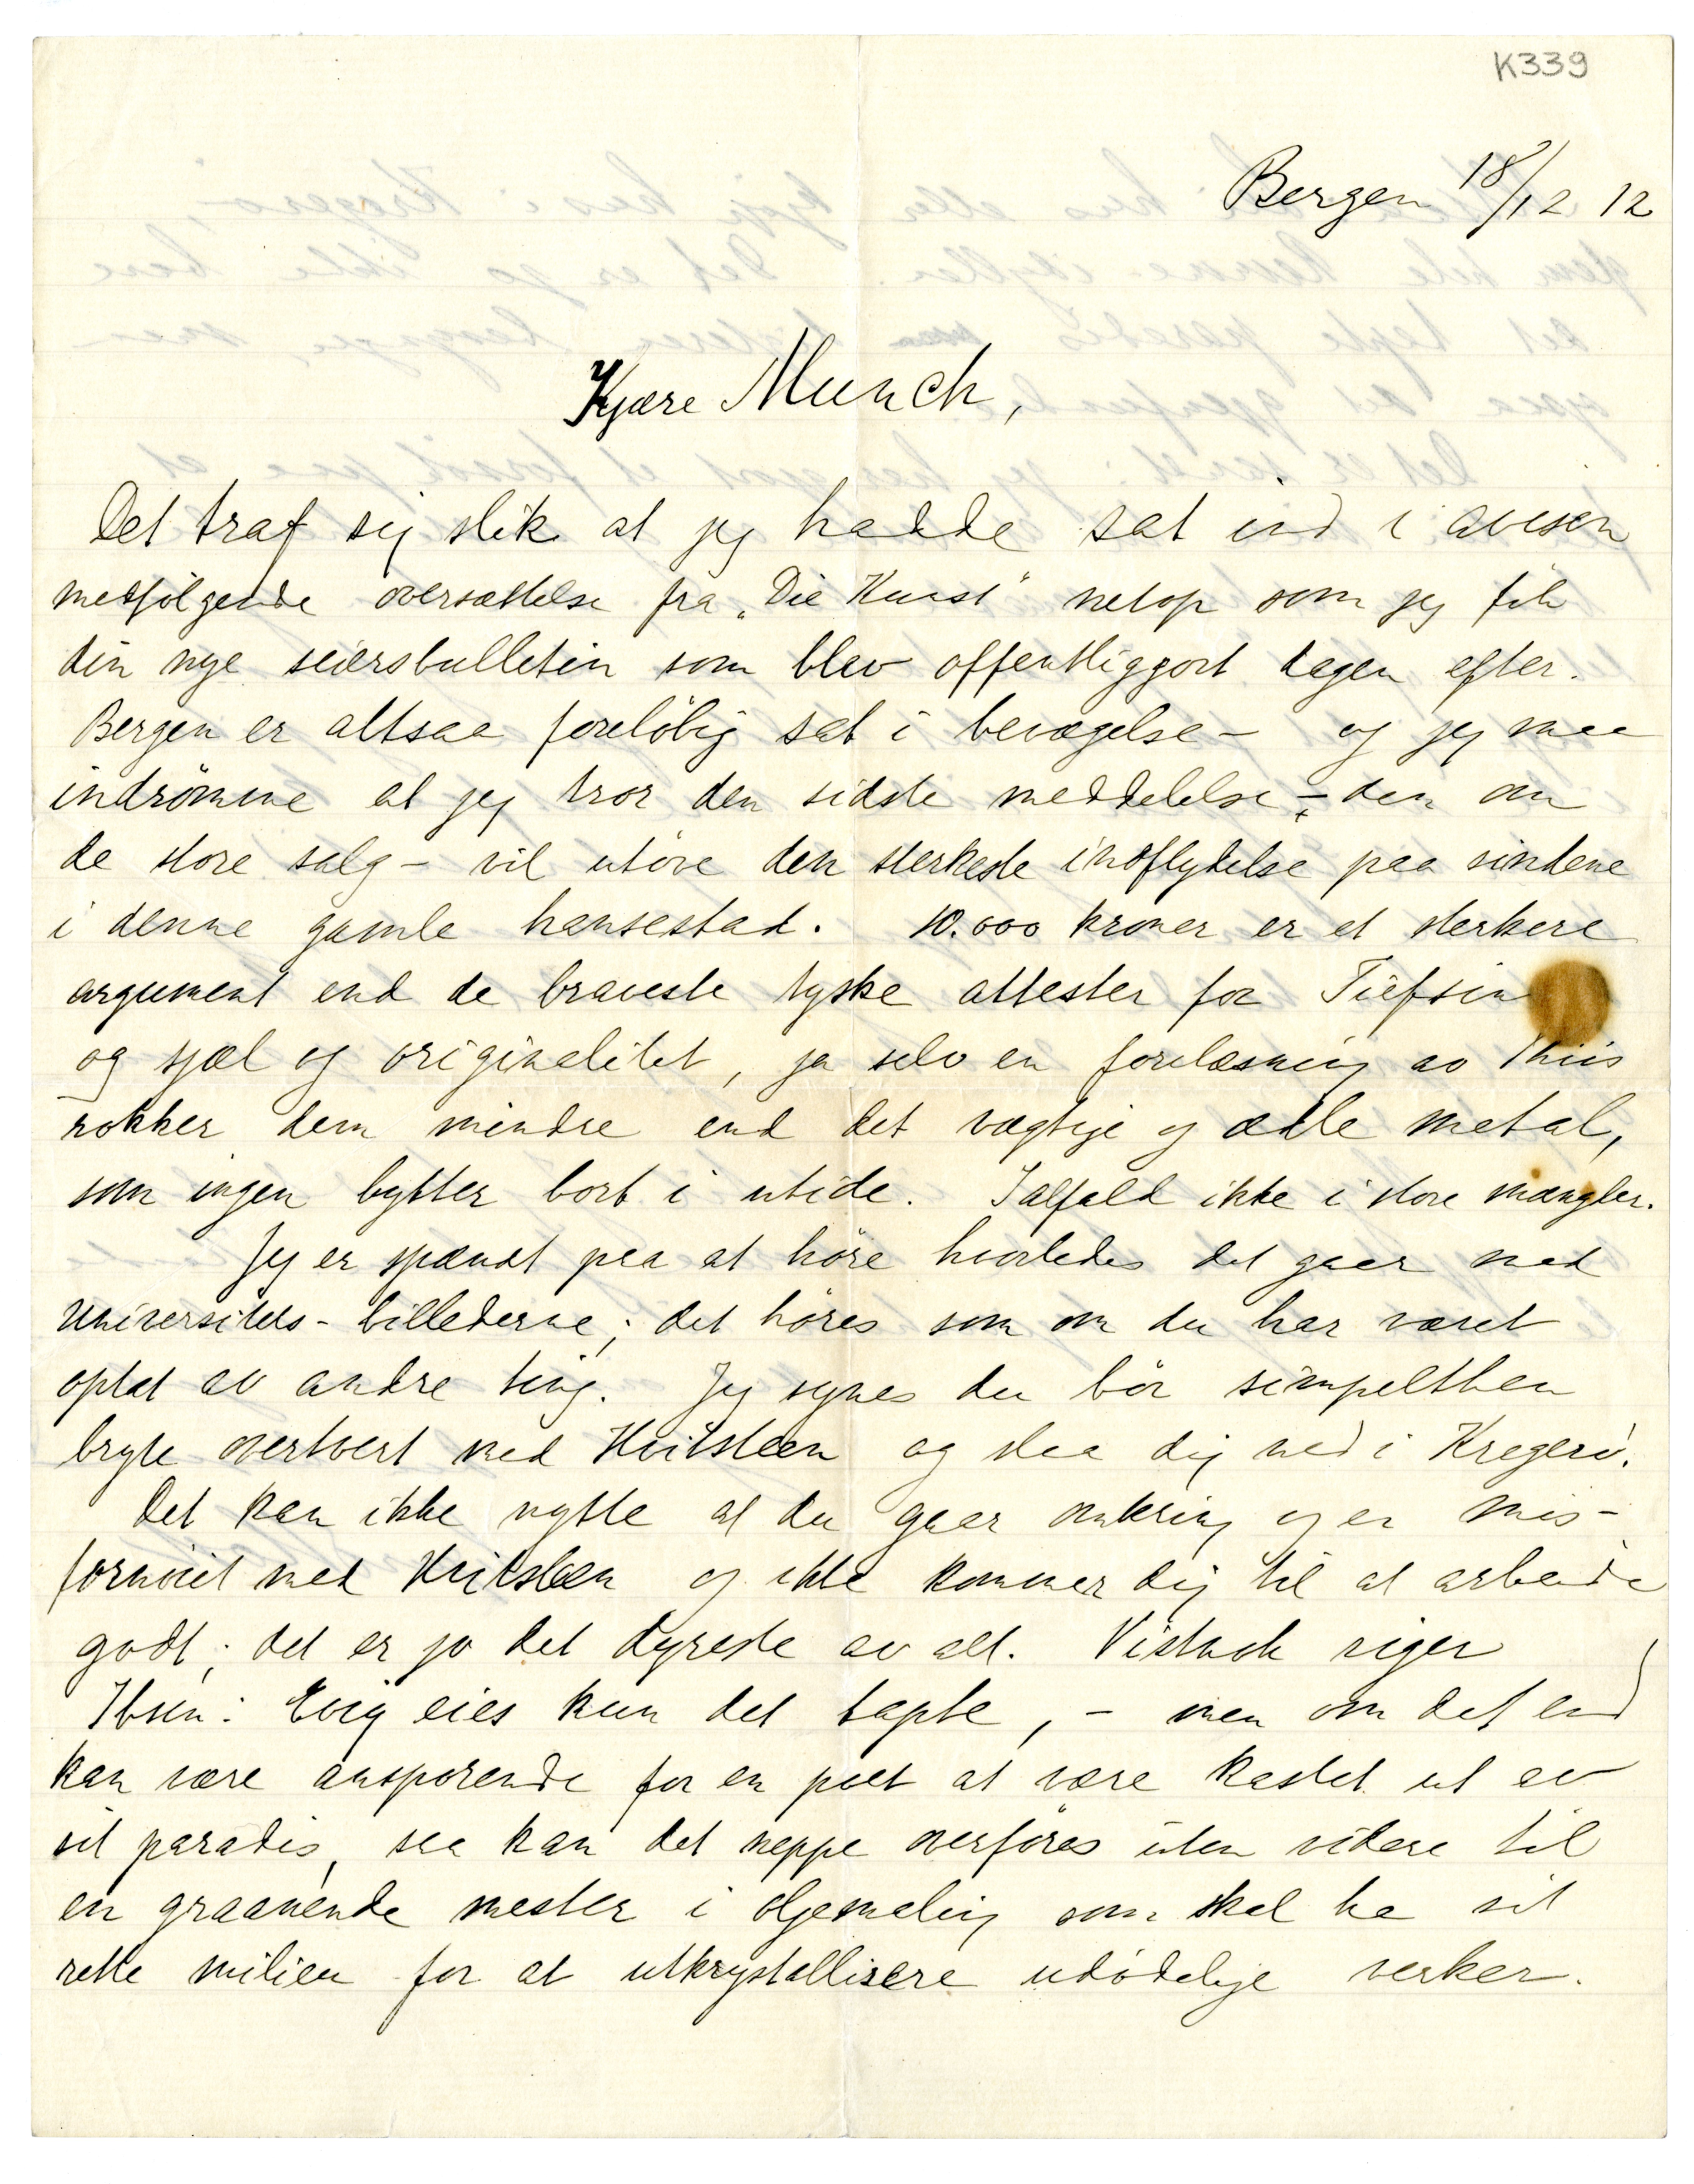 K339
Bergen 18/12 12
Kjære Munch,
Det traf sig slik at jeg hadde sat ind i avisen
medfølgende oversættelse fra „Die Kunst" netop som jeg fik
din nye seiersbulletin som blev offentliggjort dagen efter.
Bergen er altsaa foreløbig sat i bevægelse – og jeg maa
indrømme at jeg tror den sidste meddelelse – den om
de store salg – vil utøve den sterkeste indflydelse paa sindene
i denne gamle hansestad. 10.000 kroner er et sterkere
argument end de braveste tyske attester for Tiefsin
og sjæl og originalitet, ja selv en forelæsning av Thiis
rokker dem mindre end det vægtige og ædle metal,
som ingen bytter bort i utide. Ialfald ikke i store mængder.
Jeg er spændt paa at høre hvorledes det gaar med
Universitets-billederne; det høres som om du har været
optat av andre ting. Jeg synes du bør simpelthen
bryte overtvert med Hvitsteen og slaa dig ned i Kragerø.
Det kan ikke nytte at du gaar omkring og er mis-
fornøiet med Hvitsteen og ikke kommer dig til at arbeide
godt; det er jo det dyreste av alt. Vistnok siger
Ibsen: Evig eies kun det tapte, – men om det end
kan være ansporende for en poet at være kastet ut av
sit paradis, saa kan det neppe overføres uten videre til
en graanende mester i oljemaling som skal ha sit
rette milieu for at utkrystallisere udødelige verker.